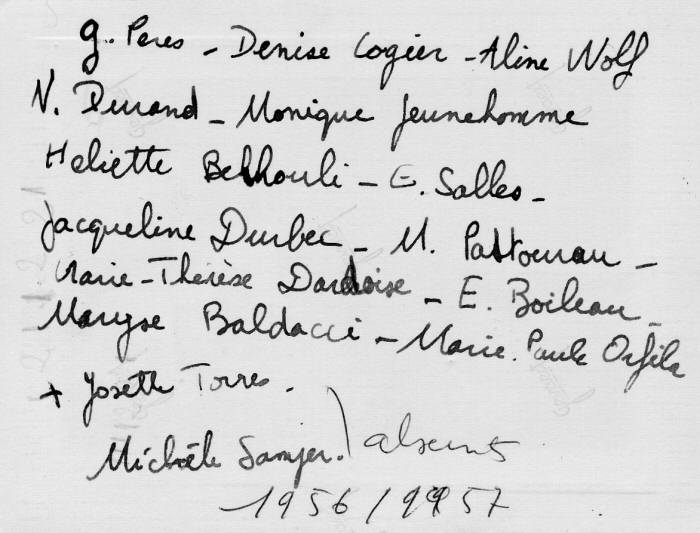 G. Peres - Denise Cogier - Aline Wolf
N. Durand - Monique Jeunehomme
Heliette Bekhouli - E. Salles -
Jacqueline Durbec - M. Pastourau -
Marie-Thérèse Dardoise - E. Boileau -
Maryse Baldacci - Marie. Paule Orfila
+ Josette Torres.
Michèle ) absents
1956 / 1957